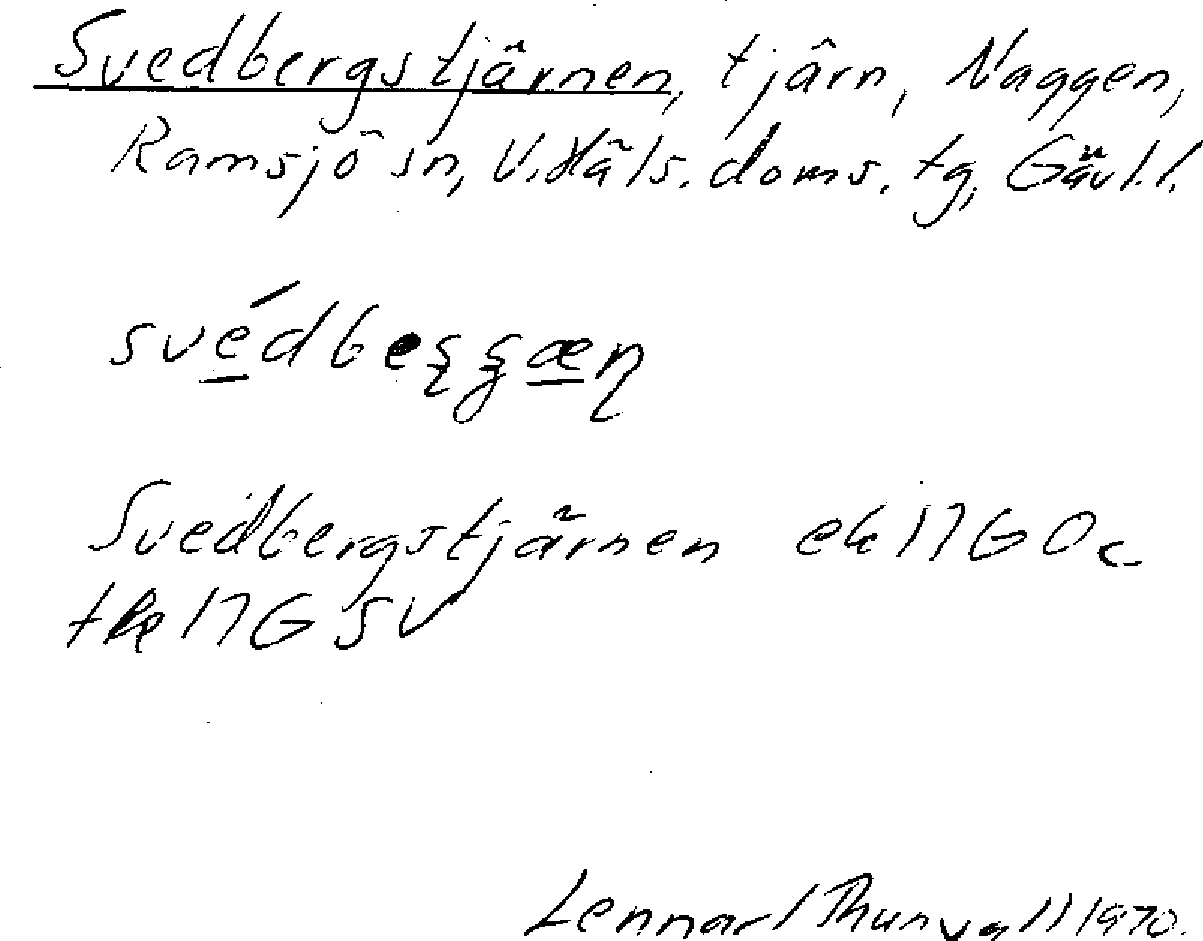 Svedbergstjärnen, tjärn, Naggen,
Ramsjö sn, V. Häls. doms. tg, Gävl. l.
Svedbergstjärnen ek 17G Oc
tk 17G SV
Lennart Thunvall 1970.